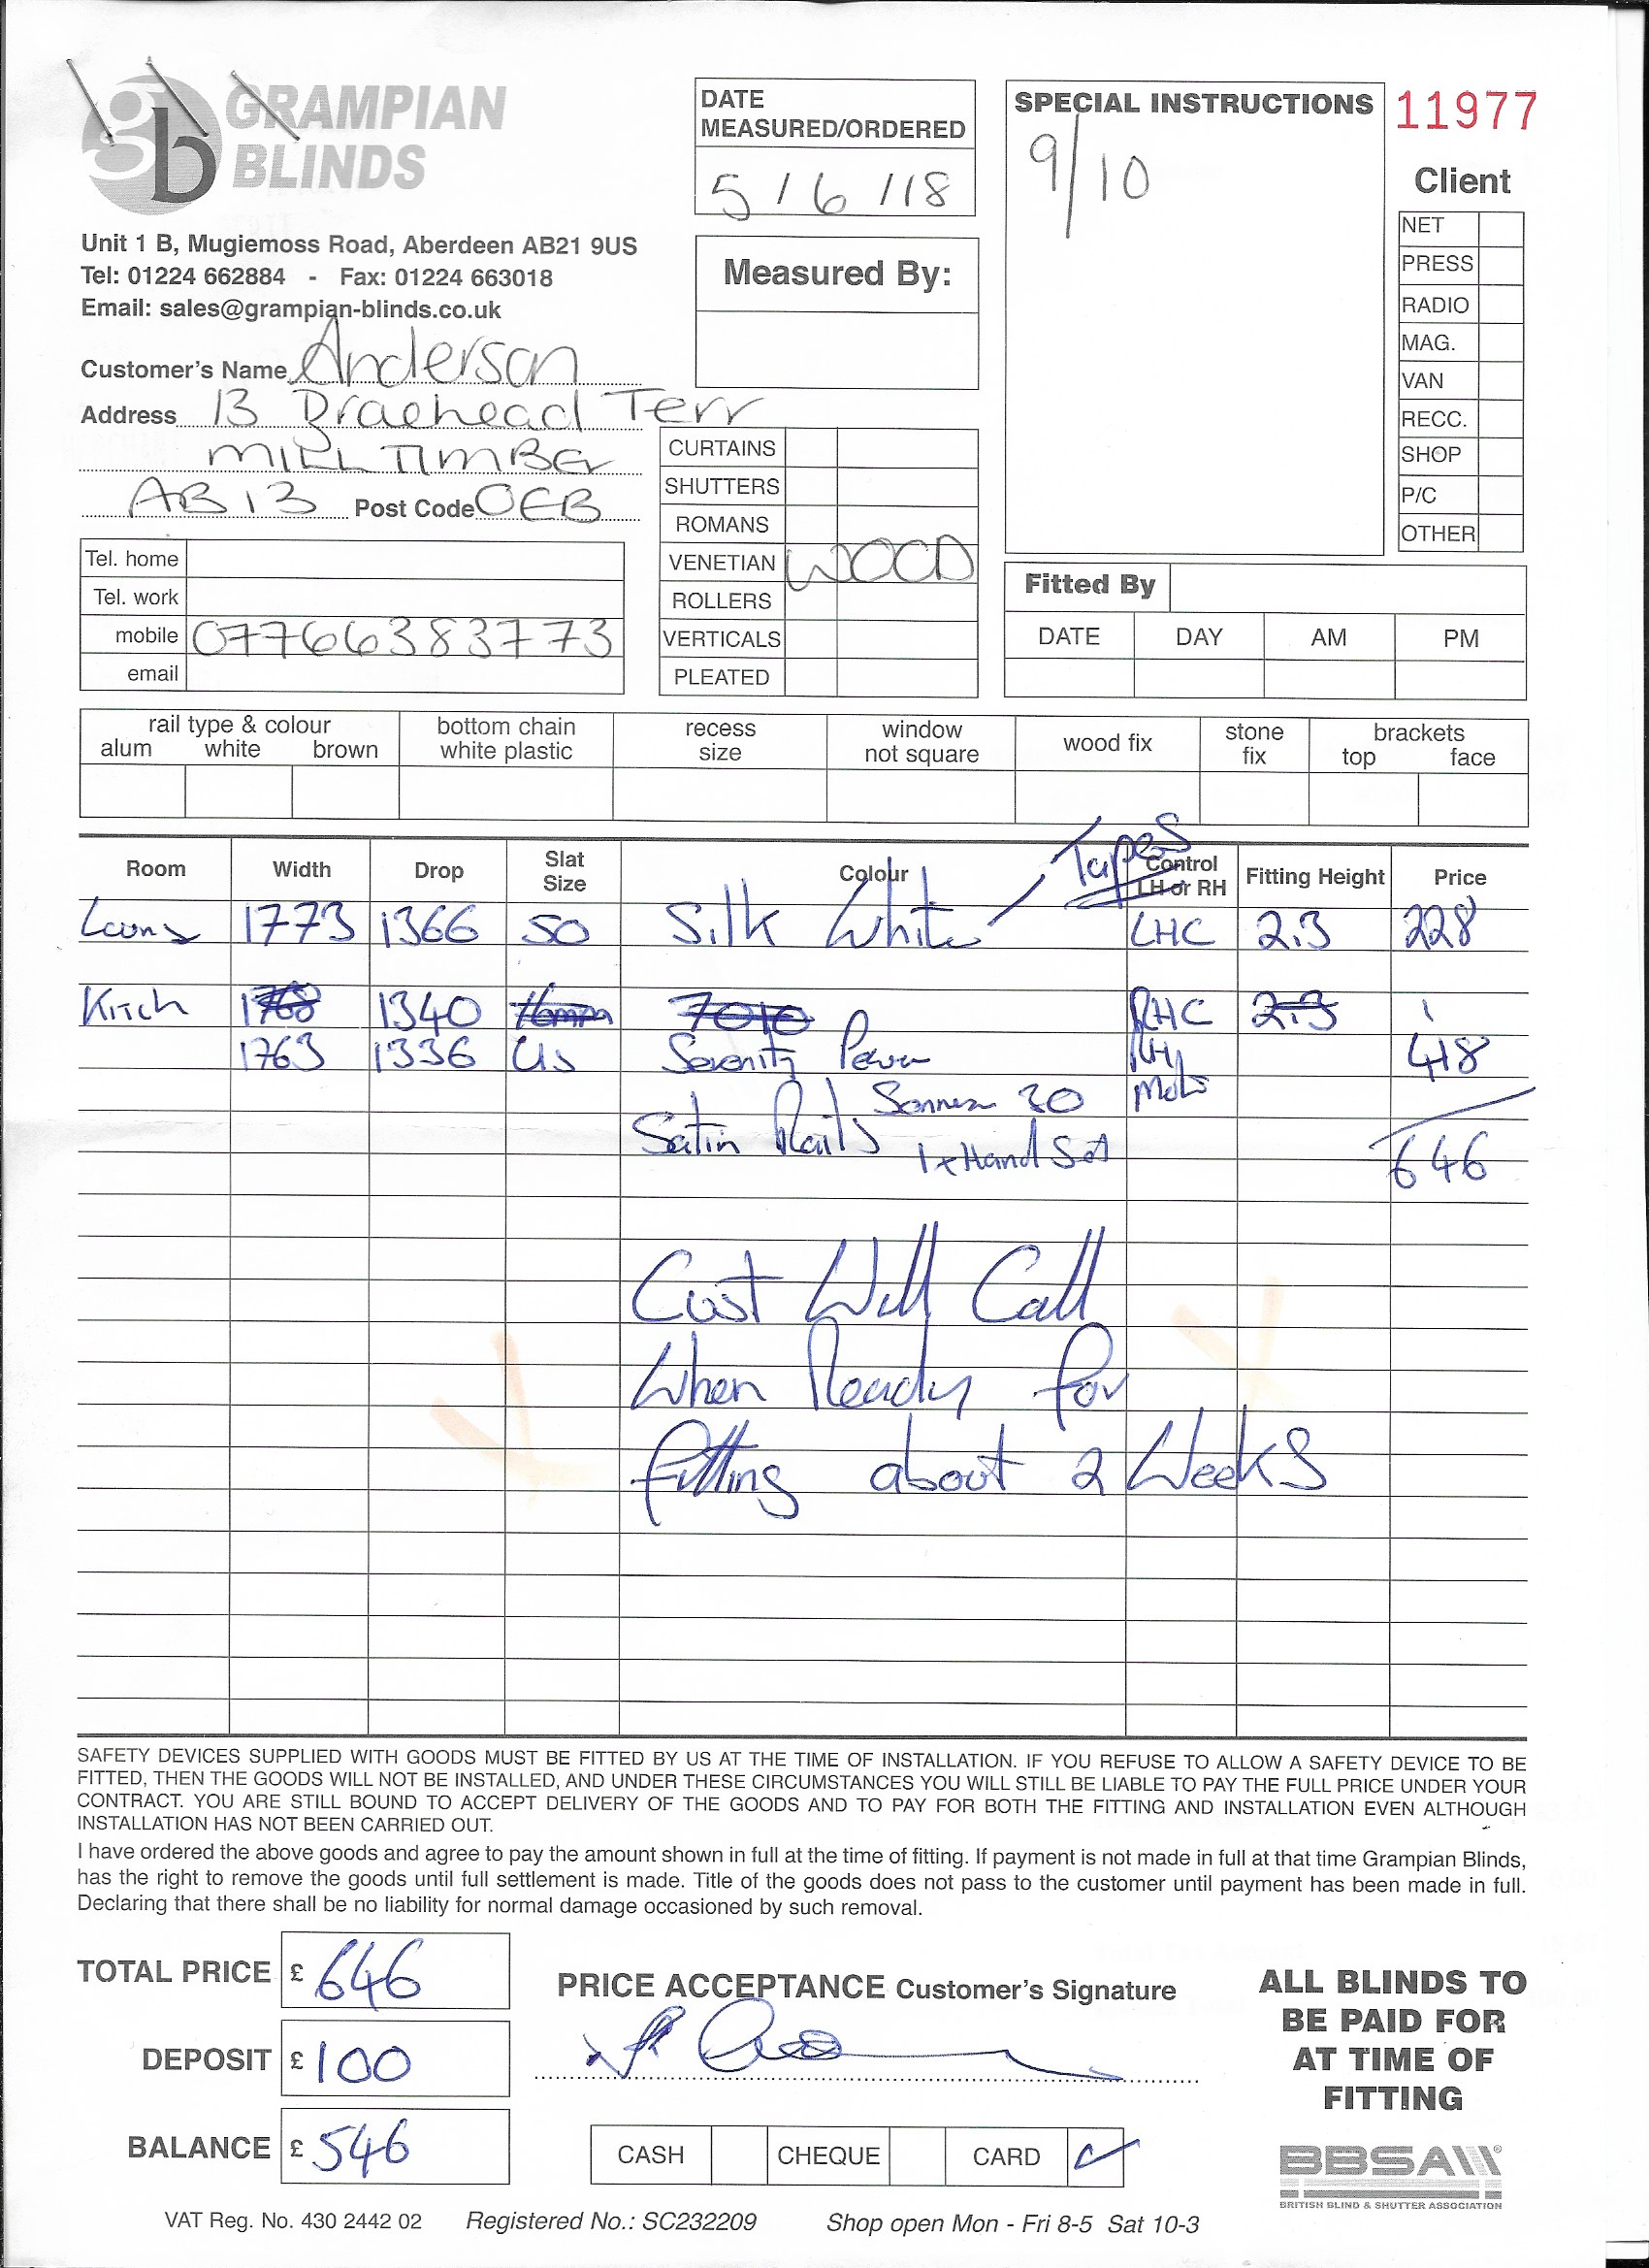 GRAMPIAN
BLINDS
gb
Unit 1 B, Mugiemoss Road, Aberdeen AB21 9US
Tel: 01224 662884 - Fax: 01224 663018
Email: sales@grampian-blinds.co.uk
Customer's Name Anderson
Address 13 Braehead Terr
MILLTIMBER
AB13 Post Code 0EB
Tel. home
Tel. work
mobile 07766383773
email
DATE
MEASURED/ORDERED
5/6/18
Measured By:
CURTAINS
SHUTTERS
ROMANS
VENETIAN WOOD
ROLLERS
VERTICALS
PLEATED
SPECIAL INSTRUCTIONS
9/10
11977
Client
NET
PRESS
RADIO
MAG.
VAN
RECC.
SHOP
P/C
OTHER
Fitted By
DATE DAY AM PM
rail type & colour
alum white brown
bottom chain
white plastic
recess
size
window
not square
wood fix
stone
fix
brackets
top face
Room Width Drop Slat Size Colour Control LH or RH Fitting Height Price
Tapes
1773 1366 50 Silk White LHC 2.3 228
Kitch 1768 1340 16mm 7010 RHC 2.3
1763 1336 Serenity RH 418
30 Mot
Satin Rails 1 x Hand Set 646
Cust Will Call
When Ready for
fitting about 2 Weeks
SAFETY DEVICES SUPPLIED WITH GOODS MUST BE FITTED BY US AT THE TIME OF INSTALLATION. IF YOU REFUSE TO ALLOW A SAFETY DEVICE TO BE
FITTED, THEN THE GOODS WILL NOT BE INSTALLED, AND UNDER THESE CIRCUMSTANCES YOU WILL STILL BE LIABLE TO PAY THE FULL PRICE UNDER YOUR
CONTRACT. YOU ARE STILL BOUND TO ACCEPT DELIVERY OF THE GOODS AND TO PAY FOR BOTH THE FITTING AND INSTALLATION EVEN ALTHOUGH
INSTALLATION HAS NOT BEEN CARRIED OUT.
I have ordered the above goods and agree to pay the amount shown in full at the time of fitting. If payment is not made in full at that time Grampian Blinds,
has the right to remove the goods until full settlement is made. Title of the goods does not pass to the customer until payment has been made in full.
Declaring that there shall be no liability for normal damage occasioned by such removal.
TOTAL PRICE £ 646
DEPOSIT £ 100
BALANCE £ 546
PRICE ACCEPTANCE Customer's Signature
CASH CHEQUE CARD
ALL BLINDS TO
BE PAID FOR
AT TIME OF
FITTING
BBSA
BRITISH BLIND & SHUTTER ASSOCIATION
VAT Reg. No. 430 2442 02 Registered No.: SC232209 Shop open Mon - Fri 8-5 Sat 10-3